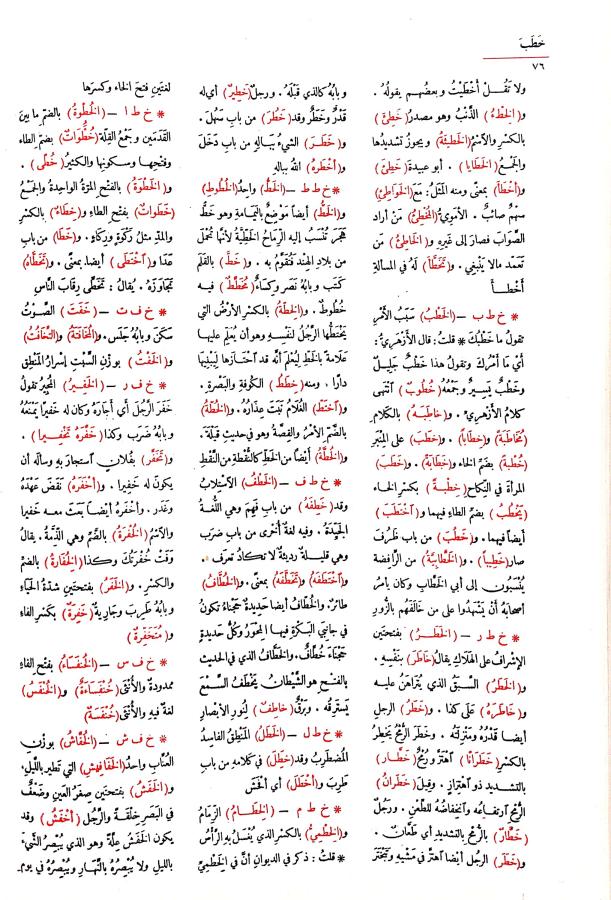 خَطَبَ
٧٦
ولا تَقُلْ أَخْطَيْتُ وبعضُهم يقولُه .
و(الخِطْءُ) الذَّنْبُ وهو مصدرُ (خَطِئَ)
بالكسر والاسْمُ (الخَطِيئَةُ) ويجوزُ تشديدُها
والجمعُ (الخَطَايا) . أبو عبيدةَ (خَطِئَ)
و(أَخْطَأَ) بمعنًى ومنه المَثَلُ: مَعَ (الخَوَاطِئِ)
سهمٌ صائبٌ . الأُمَوِيُّ (المُخْطِئُ) مَنْ أراد
الصَّوَابَ فصارَ إلى غَيرِهِ و(الخَاطِئُ) مَن
تَعَمَّد مالا يَنْبَغي . و(تَخَطَّأَ) لَهُ في المسألةِ
أَخْطَأَ
* خ ط ب – (الخَطْبُ) سَبَبُ الأَمْرِ
تقولُ ما خَطْبُكَ * قلت: قال الأزْهَرِيُّ:
أيْ ما أَمْرُكَ وتقولُ هذا خَطْبٌ جَليلٌ
وخَطْبٌ يَسيرٌ وجَمْعُهُ (خُطُوبٌ) انْتَهى
كلامُ الأزْهَرِيِّ . و(خاطَبَهُ) بالكلامِ
(مُخَاطَبَةً) و(خِطَاباً) . و(خَطَبَ) على المِنْبَرِ
(خُطْبَةً) بضمِّ الخاء و(خَطَابَةً) . و(خَطَبَ)
المرأةَ في النِّكاحِ (خِطْبَةً) بكسرِ الخاء
(يَخْطُبُ) بضم الطاءِ فيهما و(اخْتَطَبَ)
أيضاً فيهما . و(خَطُبَ) من باب ظَرُفَ
صار (خَطِيباً) . و(الخَطَّابِيَّةُ) من الرَّافِضةِ
يُنْسَبُونَ إلى أبي الخَطَّابِ وكان يأمرُ
أصحابَهُ أَنْ يَشْهَدُوا على من خالَفَهُم بالزُّورِ
* خ ط ر – (الخَطَرُ) بفتحتينِ
الإِشرافُ على الهَلاكِ يقالُ (خاطَرَ) بنَفْسِهِ .
و(الخَطَرُ) السَّبَقُ الذي يُتَرَاهَنُ عليه
و(خَاطَرَهُ) على كذا . و(خَطَرُ) الرجلِ
أيضا قَدْرُهُ ومَنْزِلَتُه . وخَطَرَ الرُّمْحُ يَخْطِرُ
بالكسر (خَطَرَاناً) اهْتَزَّ ورُمْحٌ (خَطَّارٌ)
بالتشديد ذو اهْتِزازٍ . وقيلَ (خَطَرانُ)
الرُّمْحِ ارتفاعُه وانخِفاضُه للطَّعْنِ . ورجُلٌ
(خَطَّارٌ) بالرُّمْحِ بالتشديدِ أي طَعَّانٌ .
و(خَطَرَ) الرجلُ أيضا اهتزَّ في مَشْيِه وتَبَخْتَرَ
وبابُه كالذي قَبْلَهُ . ورجلٌ (خَطِيرٌ) أي له
قَدْرٌ وخَطَرٌ وقد (خَطُرَ) من باب سَهُلَ .
و(خَطَرَ) الشيءُ ببَالِهِ من باب دَخَلَ
و(أَخْطَرَهُ) اللهُ ببالِهِ
* خ ط ط – (الخَطُّ) واحدُ (الخُطُوطِ)
و(الخَطُّ) أيضاً مَوْضِعٌ باليَمَامةِ وهو خَطُّ
هَجَرَ تُنْسَبُ إليه الرِّماحُ الخَطِّيَّةُ لأنها تُحْمَلُ
من بلاد الهِنْد فتُقَوَّمُ به . و(خَطَّ) بالقَلَمِ
كَتَبَ وبابُه نَصَرَ وكِسَاءٌ (مُخَطَّطٌ) فيه
خُطُوطٌ . و(الخِطَّةُ) بالكسرِ الأرْضُ التي
يَخْتَطُّها الرَّجُلُ لنفسِهِ وهو أن يُعْلِمَ عليها
عَلَامةً بالخَطِّ ليُعْلَمَ أنَّه قد احْتَازَها لِيَبْنِيَها
دارًا . ومنه (خِطَطُ) الكُوفةِ والبَصْرةِ .
و(اخْتَطَّ) الغُلَامُ نَبَتَ عِذَارُهُ . و(الخُطَّةُ)
بالضَّمِّ الأمْرُ والقِصَّةُ وهو في حديثِ قَيْلَةَ .
و(الخُطَّةُ) أيضاً من الخَطِّ كالنُّقْطَةِ من النَّقْطِ
* خ ط ف – (الخَطْفُ) الاسْتِلابُ
وقد (خَطِفَهُ) من باب فَهِمَ وهي اللُّغَةُ
الجَيِّدةُ . وفيه لغةٌ أُخْرَى من باب ضَرَبَ
وهي قليلةٌ رديئةٌ لا تكادُ تعرَف .
و(اخْتَطَفَهُ) و(تَخَطَّفَهُ) بمعنًى . و(الخُطَّافُ)
طائرٌ . والخُطَّافُ أيضا حديدةٌ حَجْنَاءُ تكونُ
في جانبي البَكْرةِ فيها المِحْوَرُ وكلُّ حديدةٍ
حَجْنَاءَ خُطَّافٌ . والخَطَّافُ الذي في الحديث
بالفتح هو الشَّيْطانُ يَخْطَفُ السَّمْعَ
يَسْتَرِقُه . وبَرْقٌ (خاطِفٌ) لِنُورِ الأَبْصارِ
* خ ط ل – (الخَطَلُ) المَنْطِقُ الفاسِدُ
المُضْطَرِبُ وقد (خَطِلَ) في كلامِهِ من باب
طَرِبَ و(أَخْطَلَ) أي أَفْحَشَ
* خ ط م – (الخِطَامُ) الزِّمامُ
و(الخِطْمِيُّ) بالكسر الذي يُغْسَلُ به الرَّأسُ
* قلتُ: ذكر في الديوان أنَّ في الخَطْمِيِّ
لغتين فتحَ الخاء وكسرَها
* خ ط ا – (الخُطْوةُ) بالضم ما بينَ
القَدَمينِ وجمعُ القِلَّة (خُطُواتٌ) بضم الطاء
وفتحها وسكونها والكثيرُ (خُطًى) .
و(الخَطْوَةُ) بالفتح المرَّةُ الواحِدةُ والجَمْعُ
(خَطَواتٌ) بفتح الطاءِ و(خِطَاءٌ) بالكسرِ
والمدِّ مثلُ رَكْوَةٍ ورِكَاءٍ . و(خَطَا) من بابِ
عَدَا و(اخْتَطَى) أيضا بمعنًى . و(تَخَطَّاهُ)
تَجَاوَزَهُ . يُقالُ : تَخَطَّى رِقابَ النَّاسِ
* خ ف ت – (خَفَتَ) الصَّوْتُ
سَكَنَ وبابُه جَلَسَ . و(المُخَافَتَةُ) و(التَّخَافُتُ)
و(الخَفْتُ) بوَزْنِ السَّبْتِ إسْرارُ المَنْطِقِ
* خ ف ر – (الخَفِيرُ) المُجِيرُ تقولُ
خَفَرَ الرَّجُلَ أي أجارَهُ وكان له خَفيراً يَمْنَعُهُ
وبابُه ضَرَب وكذا (خَفَّرَهُ تَخْفيراً) .
و(تَخَفَّرَ) بفُلانٍ استجارَ بِهِ وسألَه أن
يكونَ له خَفيرا . و(أَخْفَرَهُ) نَقَضَ عَهْدَهُ
وغَدَر . وأَخْفَرَهُ أيضاً بَعَثَ معه خَفيرا
والاسْمُ (الخُفْرَةُ) بالضَّمِّ وهي الذِّمَّةُ . يقالُ
وَفَتْ خُفْرَتُكَ وكذا (الخُفَارَةُ) بالضمِّ
والكسرِ . و(الخَفَرُ) بفتحتين شدّةُ الحَيَاءِ
وبابُه طَرِبَ وجَارِيةٌ (خَفِرَةٌ) بكسرِ الفاءِ
و(مُتَخَفِّرَةٌ)
* خ ف س – (الخُنْفَسَاءُ) بفتح الفاءِ
ممدودةً والأُنثَى (خُنْفَسَاءَةٌ) و(الخُنْفَسُ)
لغةٌ فيه والأُنثَى (خُنْفَسَةٌ)
* خ ف ش – (الخُفَّاشُ) بوزنِ
العُنَّاب واحدُ (الخَفَافِيشِ) التي تَطيرُ بالليلِ .
و(الخَفَشُ) بفتحتينِ صِغَرُ العينِ وضَعْفٌ
في البَصَرِ خِلْقَةً والرَّجُلُ (أَخْفَشُ) وقد
يكون الخَفَشُ عِلَّةً وهو الذي يُبْصِرُ الشَّيْءَ
بالليلِ ولا يُبْصِرُهُ بالنَّهارِ ويُبْصِرُهُ في يومِ